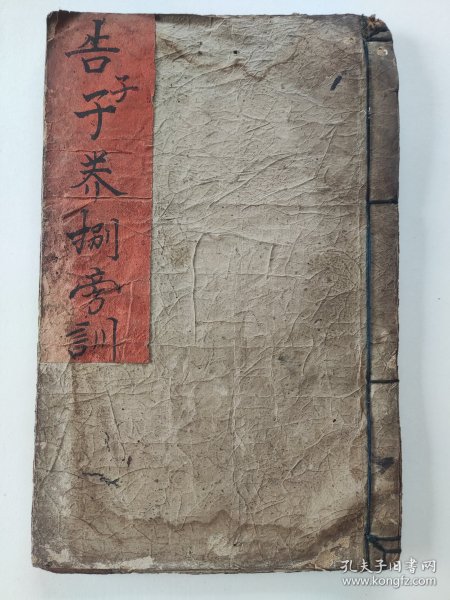 告子子养捌旁訓
孔夫子旧书网
www.kongfz.com